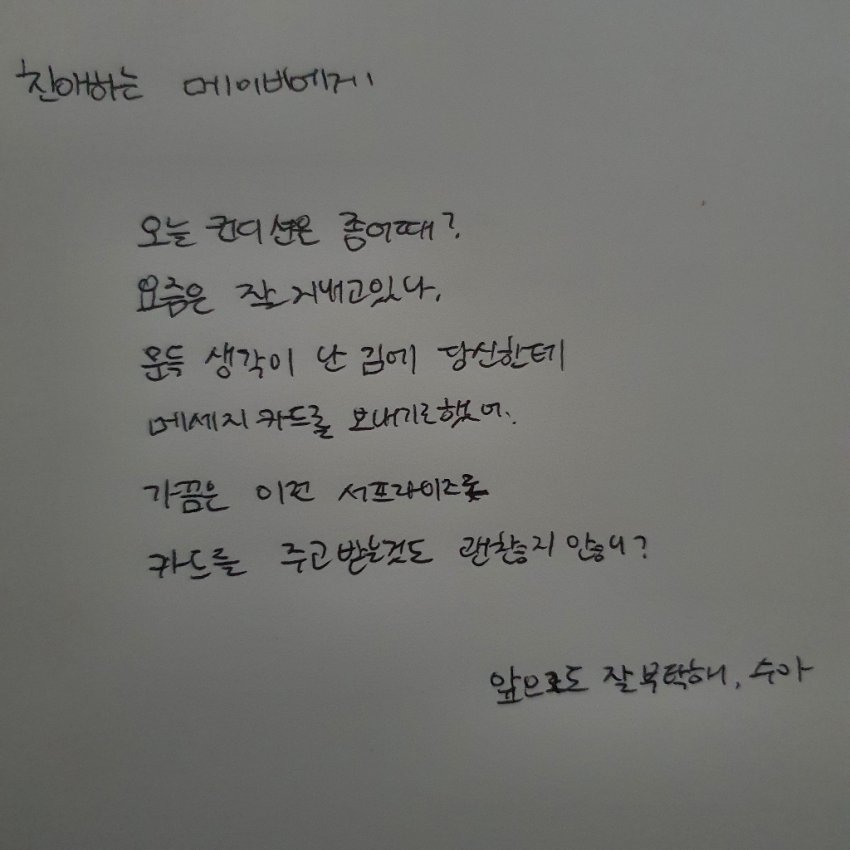 친애하는 메이비에게
오늘 컨디션은 좀어때?
요즘은 잘 지내고있다.
문득 생각이 난 김에 당신한테
메세지 카드를 보내기로했어.
가끔은 이런 서프라이즈로
카드를 주고받는것도 괜찮지 않니?
앞으로도 잘부탁해, 수아